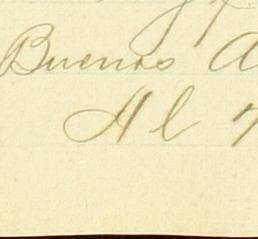 Buenos A
Al